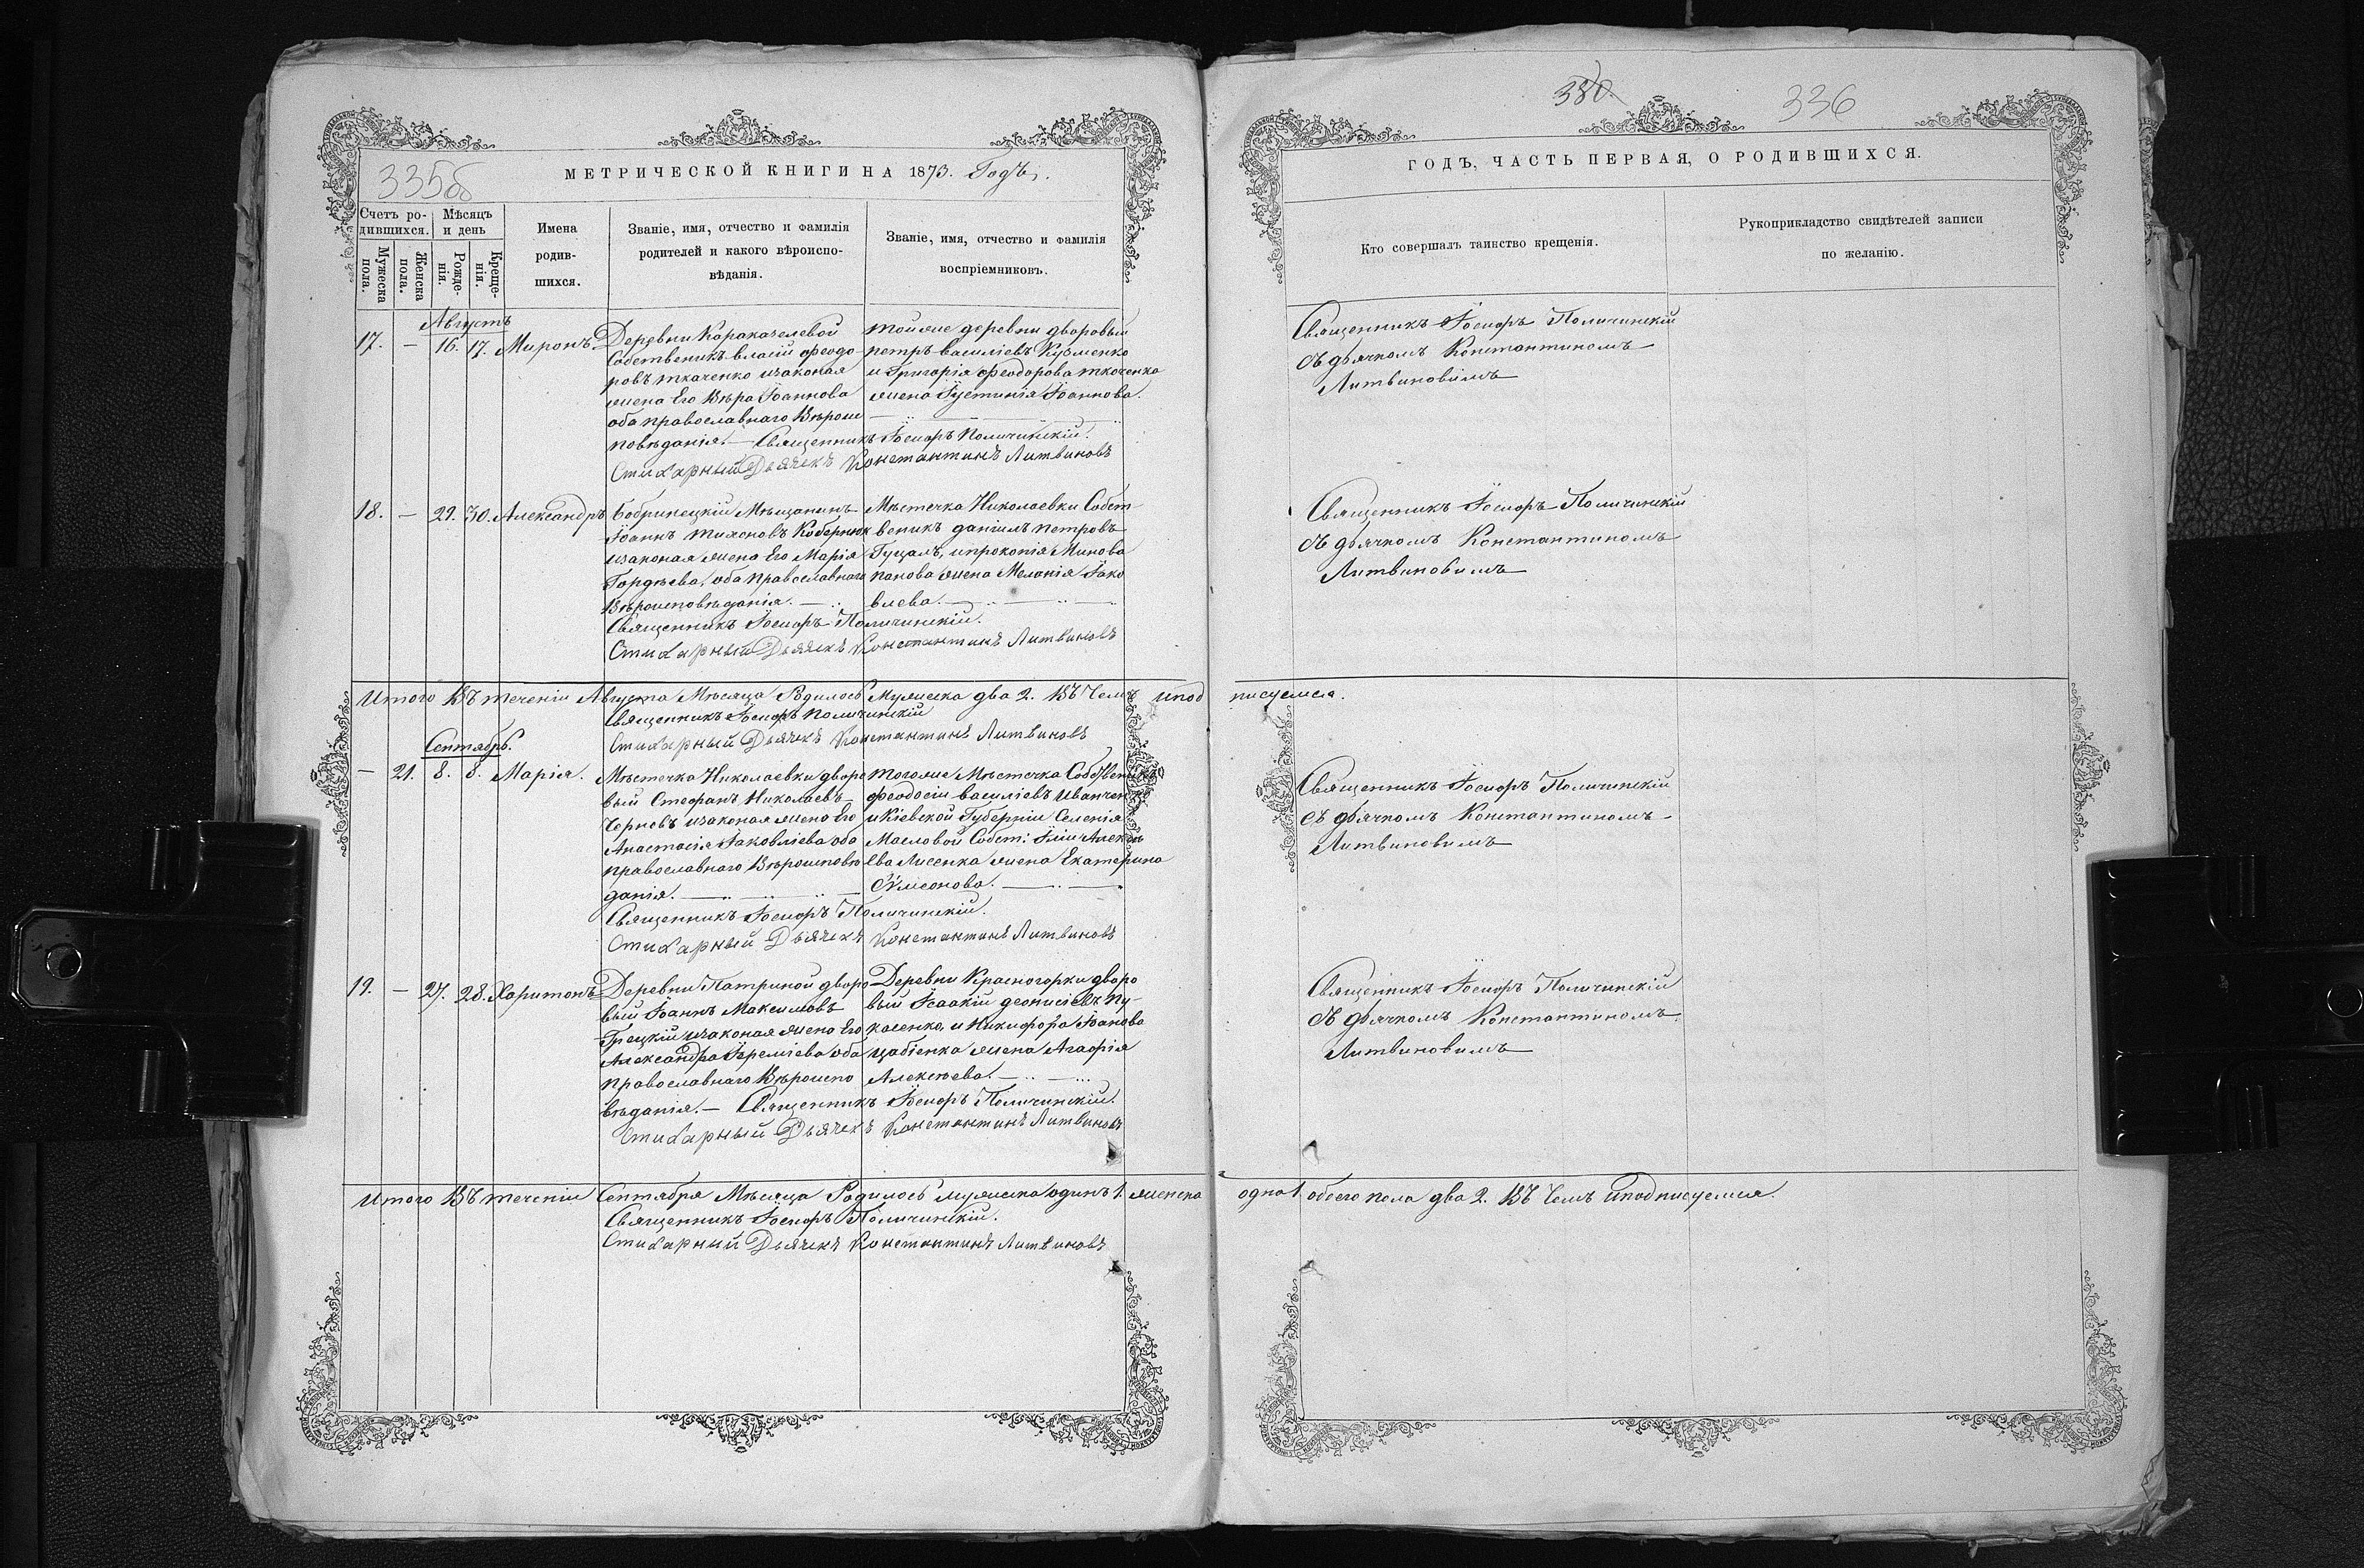 335об
МЕТРИЧЕСКОЙ КНИГИ НА 1873. Годъ.
Счетъ ро-
дившихся.
Мужеска
пола.
Женска
пола.
Мѣсяцъ
и день
Рожде-
нія.
Креще-
нія.
Имена
родив-
шихся.
Званіе, имя, отчество и фамилія
родителей и какого вѣроиспо-
вѣданія.
Званіе, имя, отчество и фамилія
воспріемниковъ.
Августъ
17. — 16. 17. Миронъ
Деревни Каракачелевой
Собственикъ власій феодо-
ровъ ткаченко изаконая
жена Его Вѣра Іоаннова
оба православнаго Вѣроис
повѣданія. — Священникъ Іосифъ Поличинскій.
Стихарный Дьячекъ Константинъ Литвиновъ
тойже деревни дворовый
петръ василіевъ Кузменко
и Григорія феодорова ткаченка
жена Іустинія Іоаннова.
18. — 29. 30. Александръ
Бобринецкій Мѣщанинъ
Іоаннъ тихоновъ Коберник
изаконая жена Его Марія
Гордѣева, оба православнаго
Вѣроисповѣданія. —
Священникъ Іосифъ Поличинскій.
Стихарный Дьячекъ Константинъ Литвиновъ
Мѣстечка Николаевки Собст-
веникъ даніилъ петровъ
Гуцалъ, ипрокопія Минова
панова жена Меланія Іако
влева. —
Итого Въ теченіи Августа Мѣсяца Родилось Мужеска два 2. Въ Чемъ иподписуемся.
Священникъ Іосифъ поличинскій
Стихарный Дьячекъ Константинъ Литвиновъ
Сентябрь.
— 21. 8. 8. Марія.
Мѣстечка Николаевки дворо
вый Стефанъ Николаевъ
Черновъ изаконая жена Его
Анастасія Іаковліева оба
православнаго Вѣроисповѣ
данія. —
Священникъ Іосифъ Поличинскій.
Стихарный Дьячекъ Константинъ Литвиновъ
тогоже Мѣстечка Собственикъ
феодосій василіевъ Иванченко
и Кіевской Губерніи Селенія
Масловой Собст: Іліи Алексѣ
ева Лисенка жена Екатерина
Сѵмеонова. —
19. — 27. 28. Харитонъ
Деревни Патриной дворо
вый Іоаннъ Максимовъ
Грецкій изаконая жена Его
Александра Іереміева оба
православнаго Вѣроиспо
вѣданія. — Священникъ Іосифъ Поличинскій.
Стихарный Дьячекъ Константинъ Литвиновъ
Деревни Красногорки дворо
вый Ісаакій деонисіевъ Лу-
касенко, и Никифора Іоанова
цабіенка жена Агафія
Алексѣева. —
Итого Въ теченіи Сентября Мѣсяца Родилось мужеска одинъ 1. женска одна 1 обоего пола два 2. Въ Чемъ иподписуемся.
Священникъ Іосифъ Поличинскій.
Стихарный Дьячекъ Константинъ Литвиновъ
380.
336
ГОДЪ, ЧАСТЬ ПЕРВАЯ, О РОДИВШИХСЯ.
Кто совершалъ таинство крещенія.
Рукоприкладство свидѣтелей записи
по желанію.
Священникъ Іосифъ Поличинскій
съ дьячкомъ Константиномъ
Литвиновымъ
Священникъ Іосифъ Поличинскій
съ дьячкомъ Константиномъ
Литвиновымъ
Священникъ Іосифъ Поличинскій
съ дьячкомъ Константиномъ
Литвиновымъ
Священникъ Іосифъ Поличинскій
съ дьячкомъ Константиномъ
Литвиновымъ